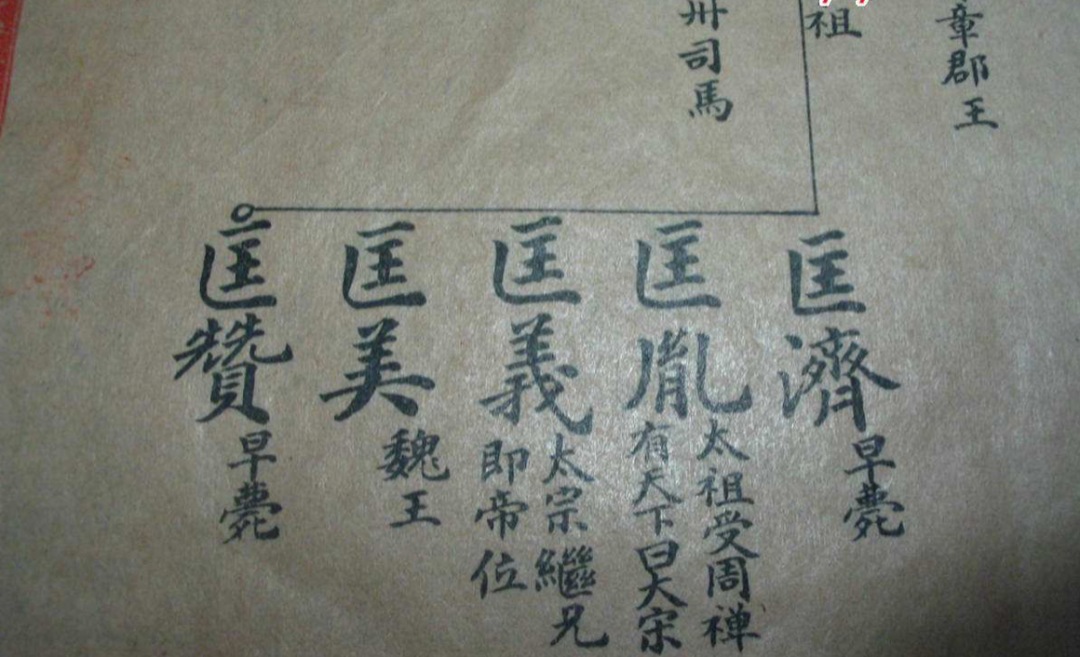 章郡王
祖
州司馬
匡濟
早薨
匡胤
太祖受周禅
有天下曰大宋
匡義
太宗繼兄
即帝位
匡美
魏王
匡贊
早薨